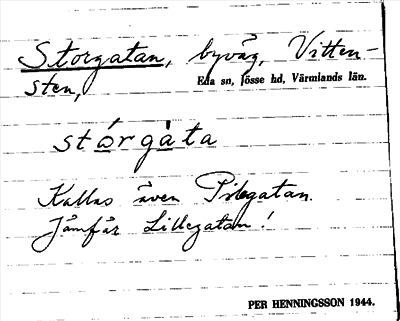 Storgatan, byväg, Vitten-
sten,
Eda sn, Jösse hd, Värmlands län.
stórgàta
Kallas även Pilegatan.
Jämför Lillegatan!
PER HENNINGSSON 1944.